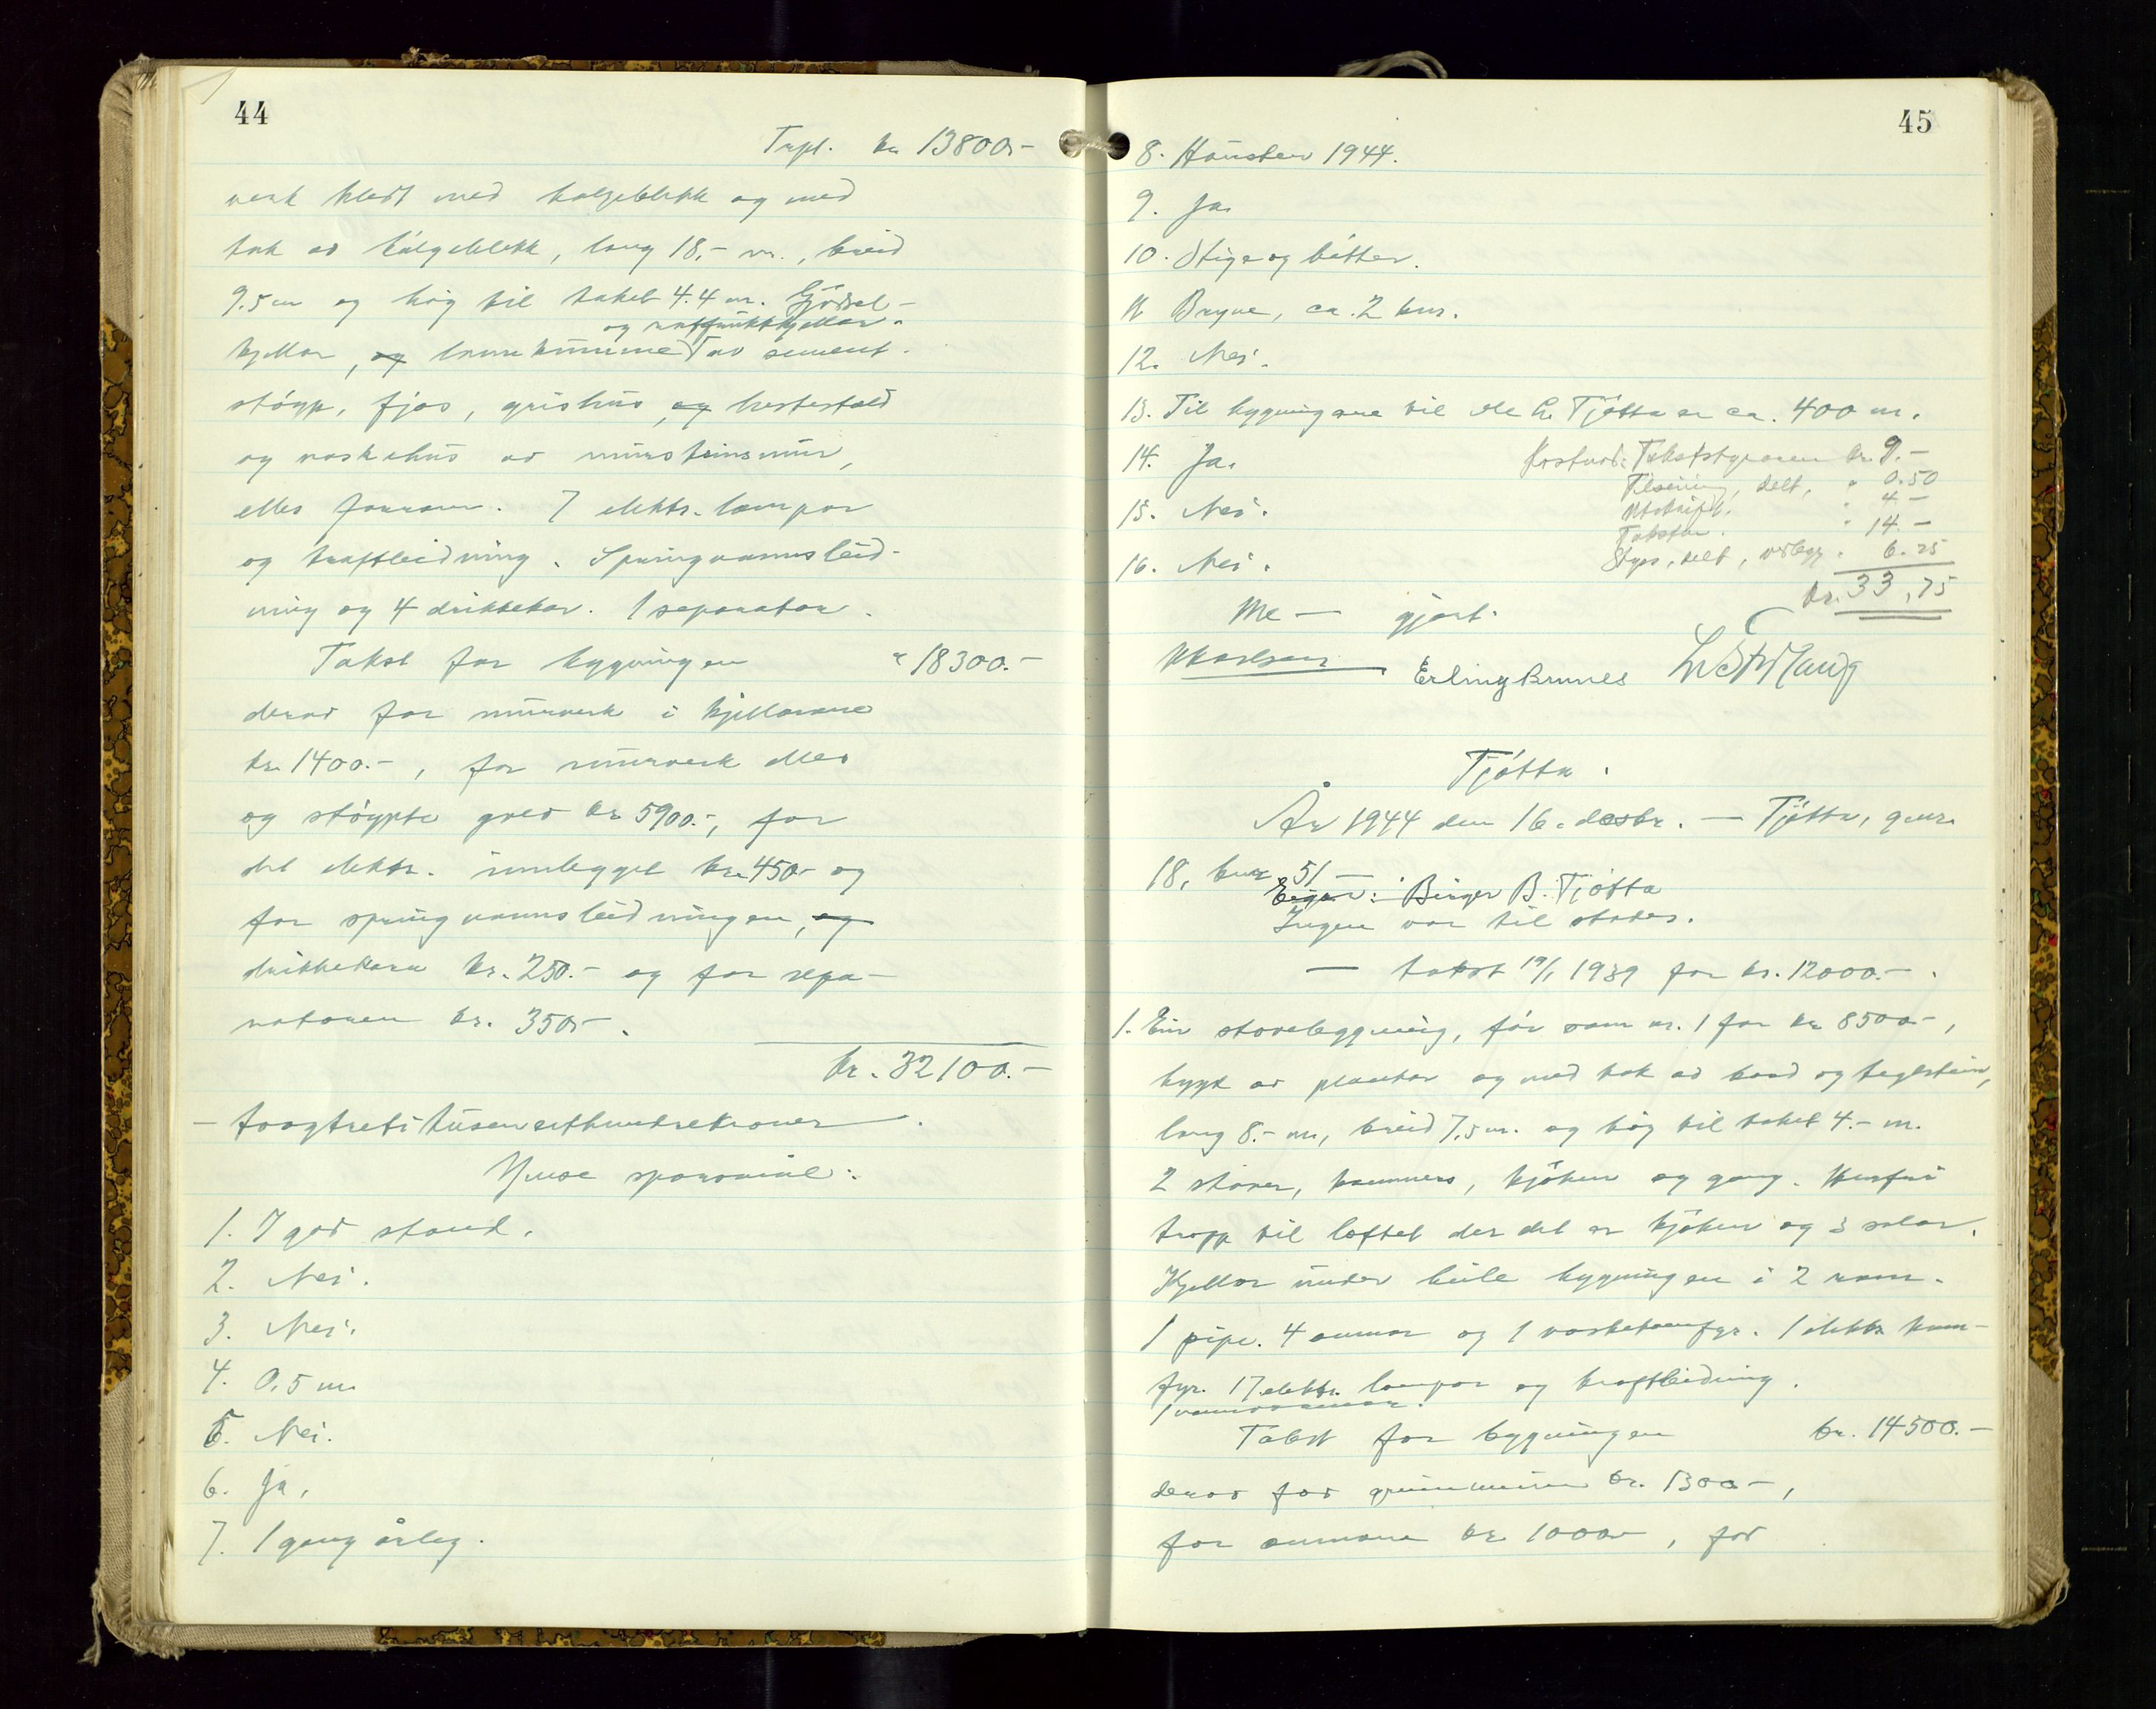 44
Trpt. kr 13800.-
verk kledt med bølgeblekk og med
tak av bølgeblekk, lang 18,- m., breid
9.5 m og høg til taket 4.4 m. Gjødsel-
og saftfruktkjellar.
kjellar, og lannkumme av sement-
støyp, fjøs, grishus, og hestestald
og vaskehus av murstensmur,
elles forram. 7 elektr. lampor
og kraftleidning. Springvannsleid-
ning og 4 drikkekar. 1 separator.
Takst for bygningen " 18300.-
derav for murverk i kjellarane
kr. 1400.-, for murverk elles
og støypte golv kr 5900.-, for
det elektr. innlegget kr. 450.- og
for springvannsleidningen, og
drikkekara kr. 250.- og for sepa-
ratoren kr. 350.-.
kr. 32100.-
- toogtretituseneitthundrekroner.
Ymse spørsmål:
1. I god stand.
2. Nei.
3. Nei.
4. 0,5 m.
5. Nei.
6. Ja.
7. 1 gang årleg.
45
8. Hausten 1944.
9. Ja.
10. Stige og bøtter.
11 Bryne, ca. 2 km.
12. Nei.
13. Til bygningane til Ole G. Tjøtta er ca. 400 m.
14. Ja.
Kostnad: Takststyraren kr. 9.-
Tilseining, delt, " 0.50
15. Nei.
Utskrift. " 4.-
Takstm. " 14.-
16. Nei.
Skyss, delt, vedlegg " 6.25
kr. 33,75
Me - gjort.
Erling Brunes
Tjøtta.
År 1944 den 16. desbr. - Tjøtta, g.nr.
18, bnr 51 -
Eigar: Birger B. Tjøtta
Ingen var til stades.
- takst 19/1 1939 for kr. 12000.-.
1. Ein stovebygning, før som nr. 1 for kr 8500.-,
bygt av plankar og med tak av bord og teglstein,
lang 8.- m, breid 7,5 m. og høg til taket 4.- m.
2 stover, kammers, kjøken og gang. Herfrå
tropp til loftet der det er kjøken og 3 salar.
Kjellar under heile bygningen i 2 rom.
1 pipe. 4 omnar og 1 vaskekomfyr. 1 elektr kom-
fyr. 17 elektr. lampor og kraftleidning.
Takst for bygningen kr. 14500.-
derav for grunnmuren kr. 1300.-,
for omnane kr 1000.-, for